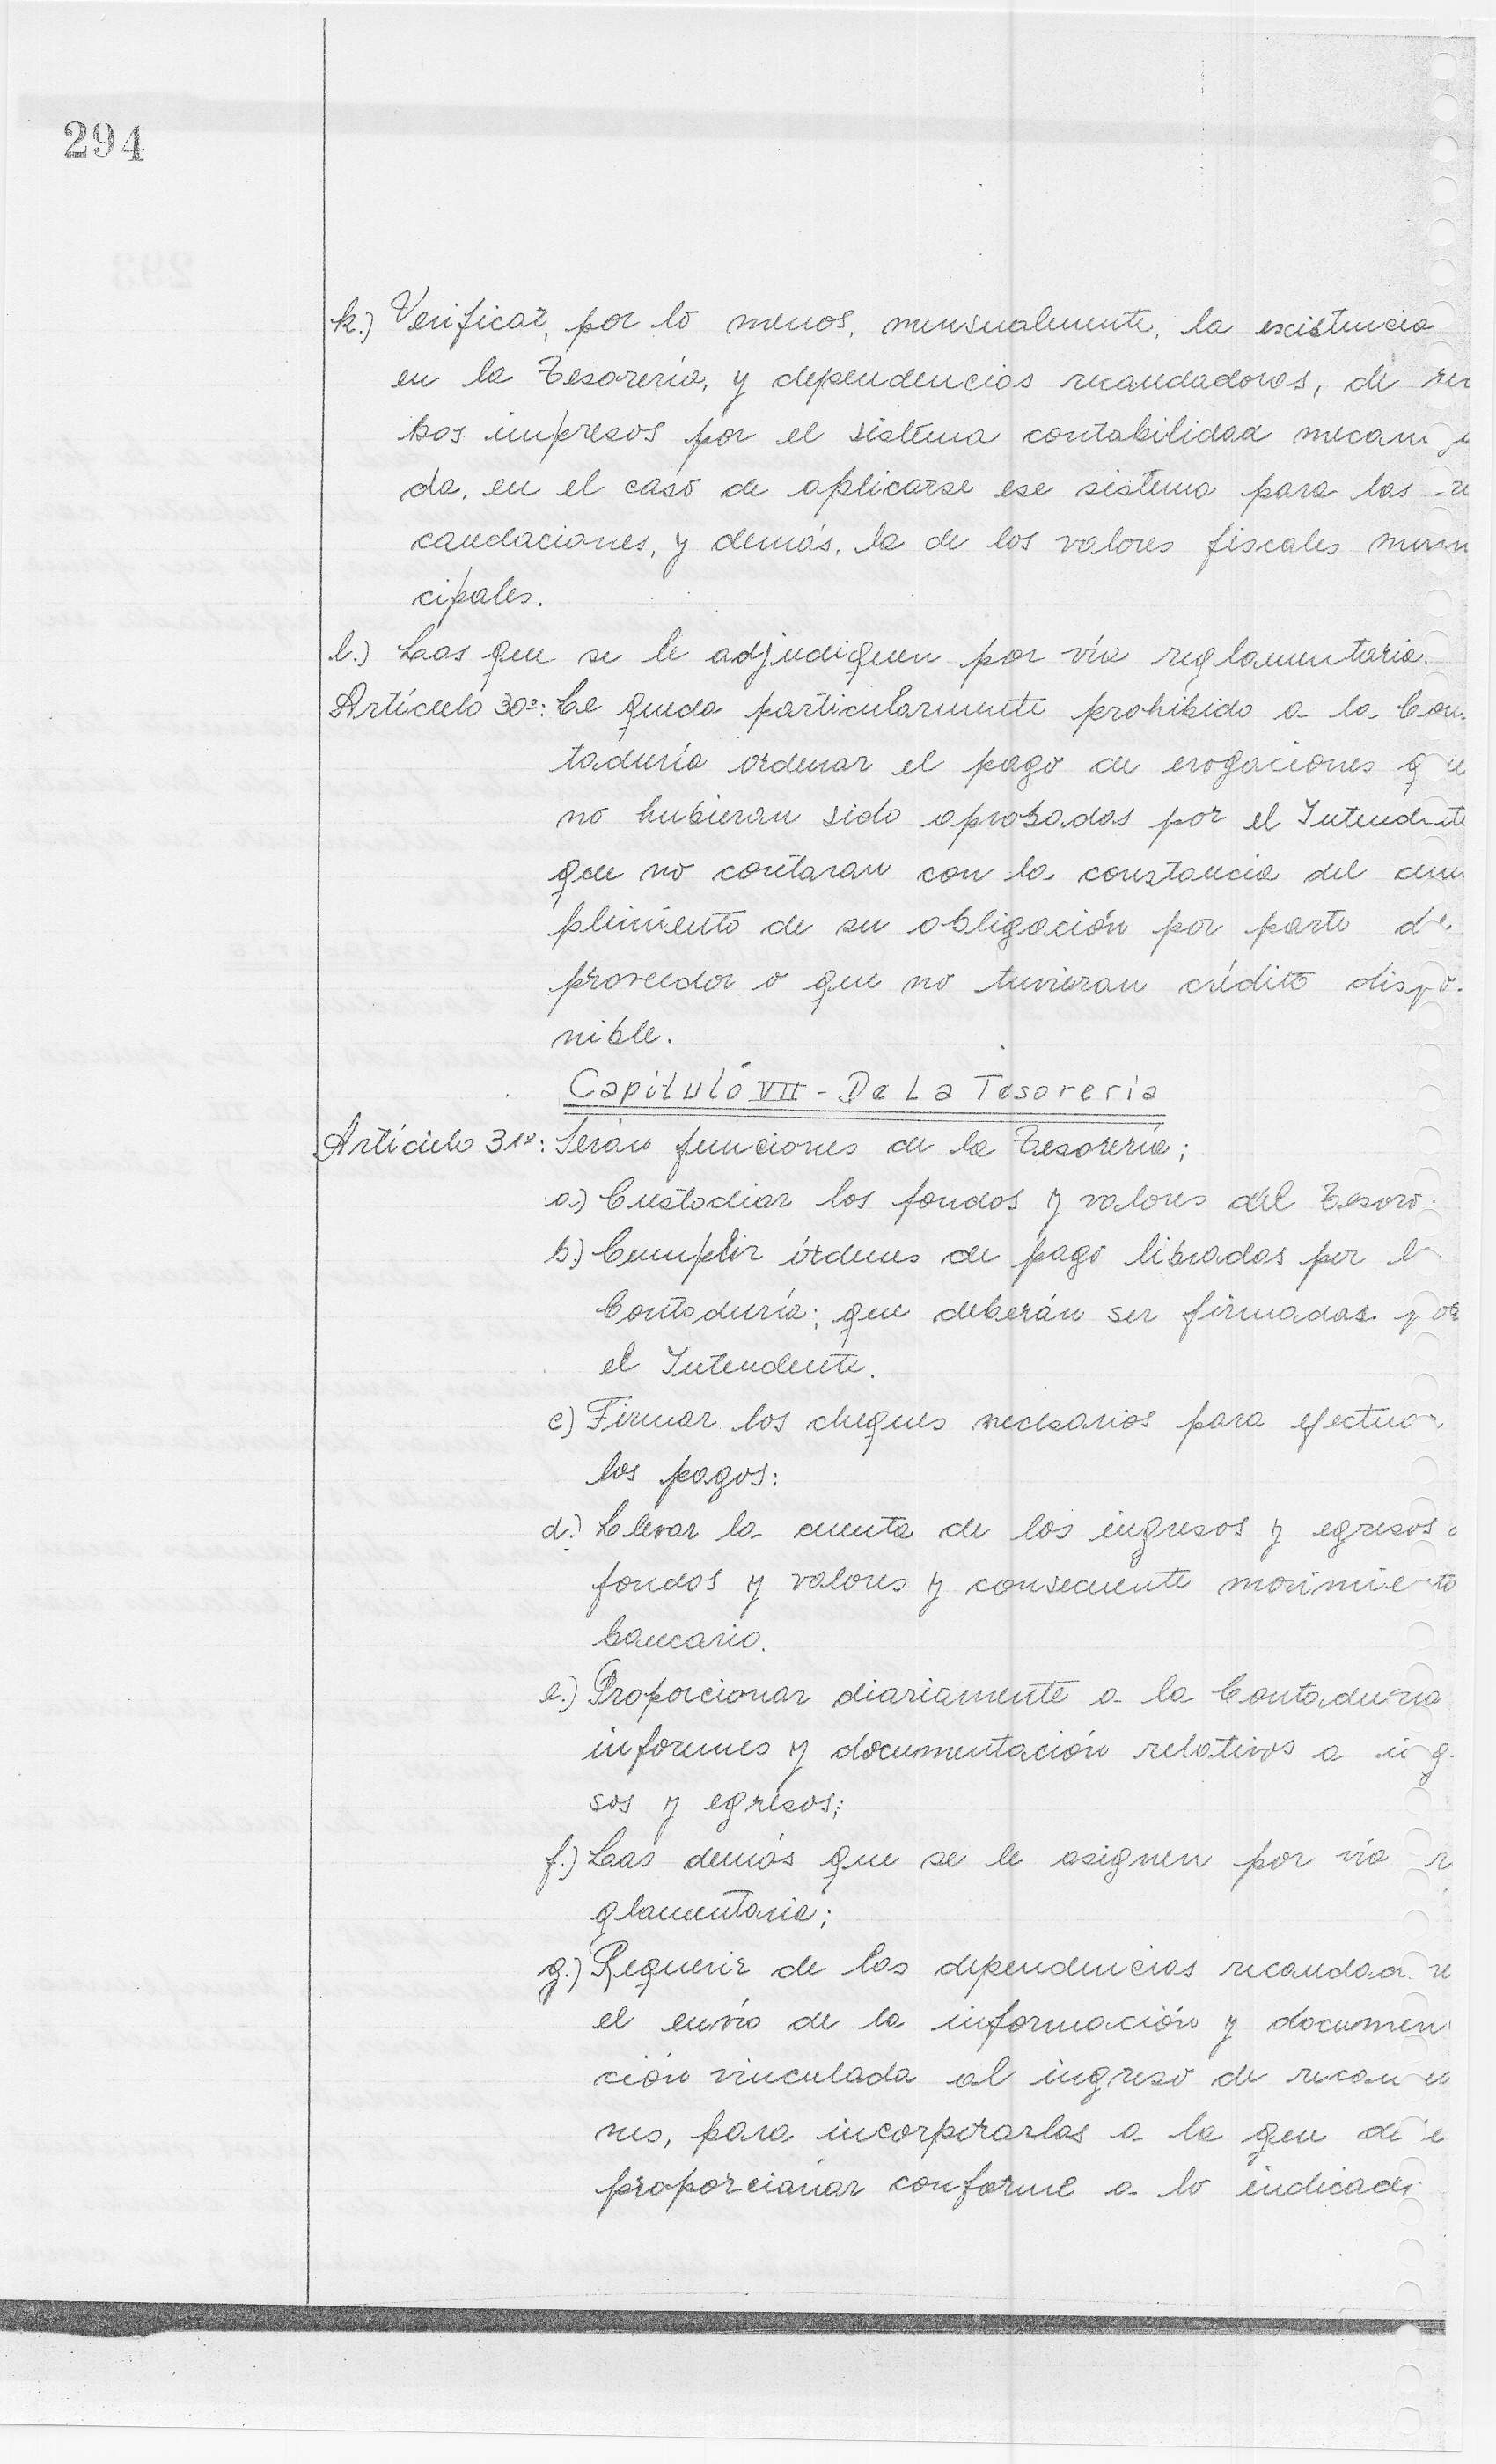 294
k.) Verificar, por lo menos, mensualmente, la existencia
en la Tesorería, y dependencias recaudadoras, de
bos impresos por el sistema contabilidad mecani
da, en el caso de aplicarse ese sistema para las re
caudaciones, y demás, la de los valores fiscales muni
cipales.
l.) Las que se le adjudiquen por vía reglamentaria.
Artículo 30º: Le queda particularmente prohibido a la Con-
taduría ordenar el pago de erogaciones que
no hubieran sido aprobadas por el Intendente
que no contaran con la constancia del cum
plimiento de su obligación por parte de
proveedor o que no tuvieran crédito dispo-
nible.
Capítulo VII - De La Tesorería
Artículo 31º: Serán funciones de la Tesorería;
a.) Custodiar los fondos y valores del Tesoro.
b.) Cumplir órdenes de pago libradas por l
Contaduría; que deberán ser firmadas por
el Intendente.
c) Firmar los cheques necesarios para efectuar
los pagos:
d.) Llevar la cuenta de los ingresos y egresos
fondos y valores y consecuente movimiento
bancario.
e.) Proporcionar diariamente a la Contaduría
informes y documentación relativos a ing
sos y egresos;
f.) Las demás que se le asignen por vía r
glamentaria;
g.) Requerir de las dependencias recaudad
el envío de la información y documen
ción vinculada al ingreso de recau
nes, para incorporarlas a la que de e
proporcionar conforme a lo indicad